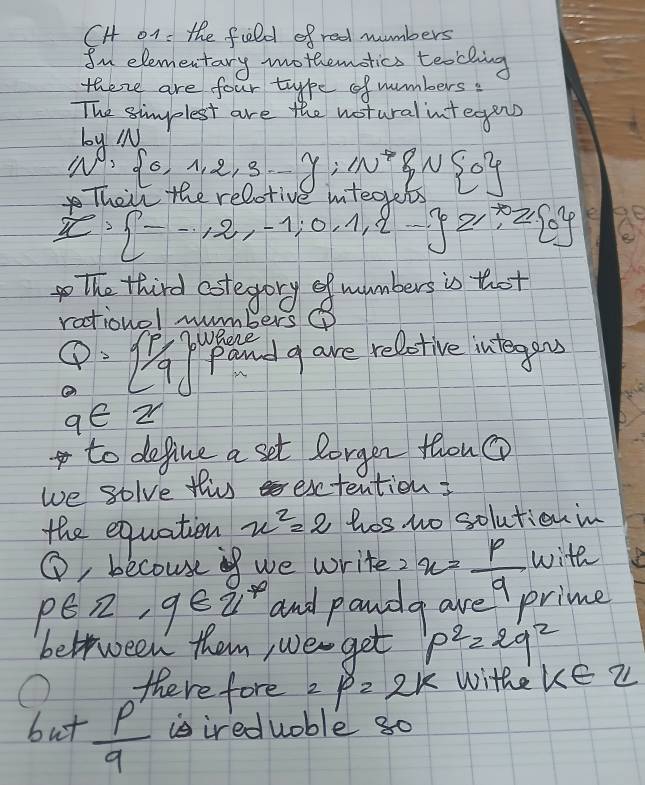 CH 01: the field of real numbers
In elementary mothemotics teoching
there are four type of numbers:
The simplest are the noturalintegers
by IN
IN: {0, 1,2,3...}; IN* {N{0}
* Then the relotive integers
Z: {- - .,2,-1;0,1,2 ...} Z*: Z{0}
* The third cotegory of numbers is thot
rotionol numbers Q
Q = {P/q} where p and q are relotive integers
q ∈ Z
* to define a set lorger thon Q
we solve this extention:
the equation x²=2 hos no solution in
Q, becouse if we write: x = p/q with
p ∈ Z, q ∈ Z* and p and q are prime
between them, we get p² = 2q²
therefore : p = 2k withe k ∈ Z
but p/q is ireduoble so